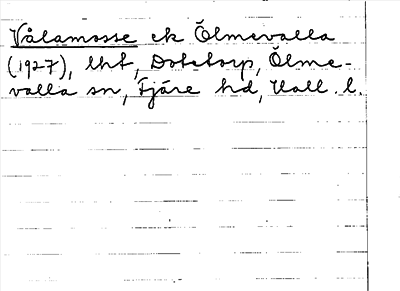 Vålamosse ek Ölmevalla
(1927), lht, Dotetorp, Ölme-
valla sn, Fjäre hd, Hall. l.